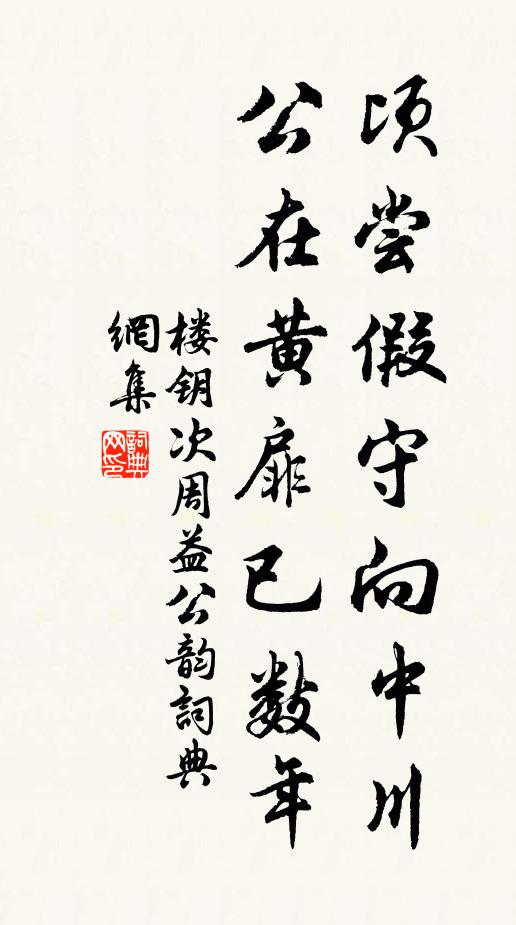 顷尝假守向中川
公在黄扉已数年
楼钥次周益公韵詞典
網集
詞典网印